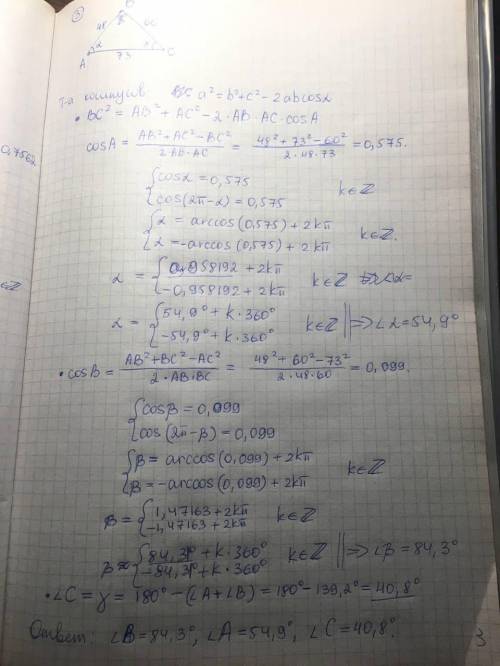 ③
B
48
60
β
α
A
73
C
т-а косинусов a² = b² + c² - 2abcosα
• BC² = AB² + AC² - 2·AB·AC·cosA
cosA = (AB² + AC² - BC²)/(2AB·AC) = (48² + 73² - 60²)/(2·48·73) = 0,575.
0,7562
{cosα = 0,575
{cos(2π-α) = 0,575
k∈ℤ
{α = arccos(0,575) + 2kπ
{α = -arccos(0,575) + 2kπ
k∈ℤ.
α = {0,958192 + 2kπ
{-0,958192 + 2kπ
k∈ℤ
α = {54,9° + k·360°
{-54,9° + k·360°
k∈ℤ ‖ => ∠α = 54,9°
• cosB = (AB² + BC² - AC²)/(2·AB·BC) = (48² + 60² - 73²)/(2·48·60) = 0,099.
{cosβ = 0,099
{cos(2π-β) = 0,099
{β = arccos(0,099) + 2kπ
{β = -arccos(0,099) + 2kπ
k∈ℤ
β = {1,47163 + 2kπ
{-1,47163 + 2kπ
k∈ℤ
β ≈ {84,3° + k·360°
{-84,3° + k·360°
k∈ℤ ‖ => ∠β = 84,3°
• ∠C = γ = 180° - (∠A + ∠B) = 180° - 139,2° = 40,8°
Ответ: ∠B = 84,3°, ∠A = 54,9°, ∠C = 40,8°.
3